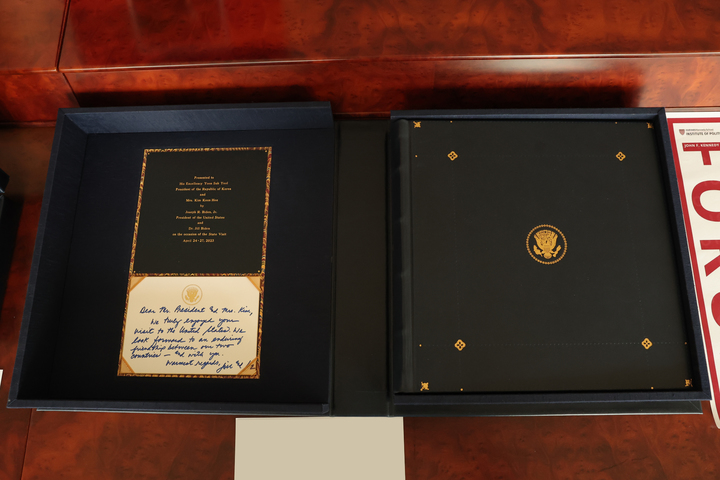 Presented to
His Excellency Yoon Suk Yeol
President of the Republic of Korea
and
Mrs. Kim Keon-Hee
by
Joseph R. Biden, Jr.
President of the United States
and
Dr. Jill Biden
on the occasion of the State Visit
April 24-27, 2023
Dear Mr. President and Mrs. Kim,
We truly enjoyed your
visit to the United States. We
look forward to an enduring
friendship between our two
countries — and with you
Warmest regards,
FORU